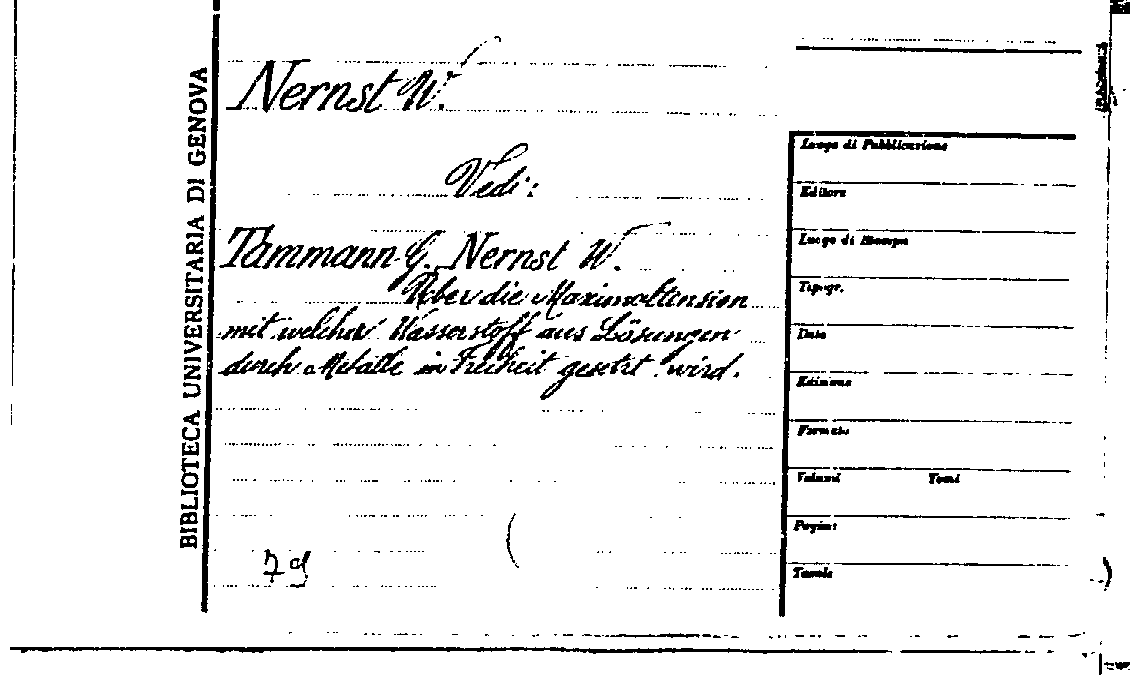 BIBLIOTECA UNIVERSITARIA DI GENOVA
Nernst W.
Vedi:
Tammann G. Nernst W.
Über die Maximaltension
mit welcher Wasserstoff aus Lösungen
durch Metalle in Freiheit gesetzt wird.
79
Luogo di Pubblicazione
Editore
Luogo di Stampa
Tipogr.
Data
Edizione
Formato
Volumi Tomi
Pagine
Tavole